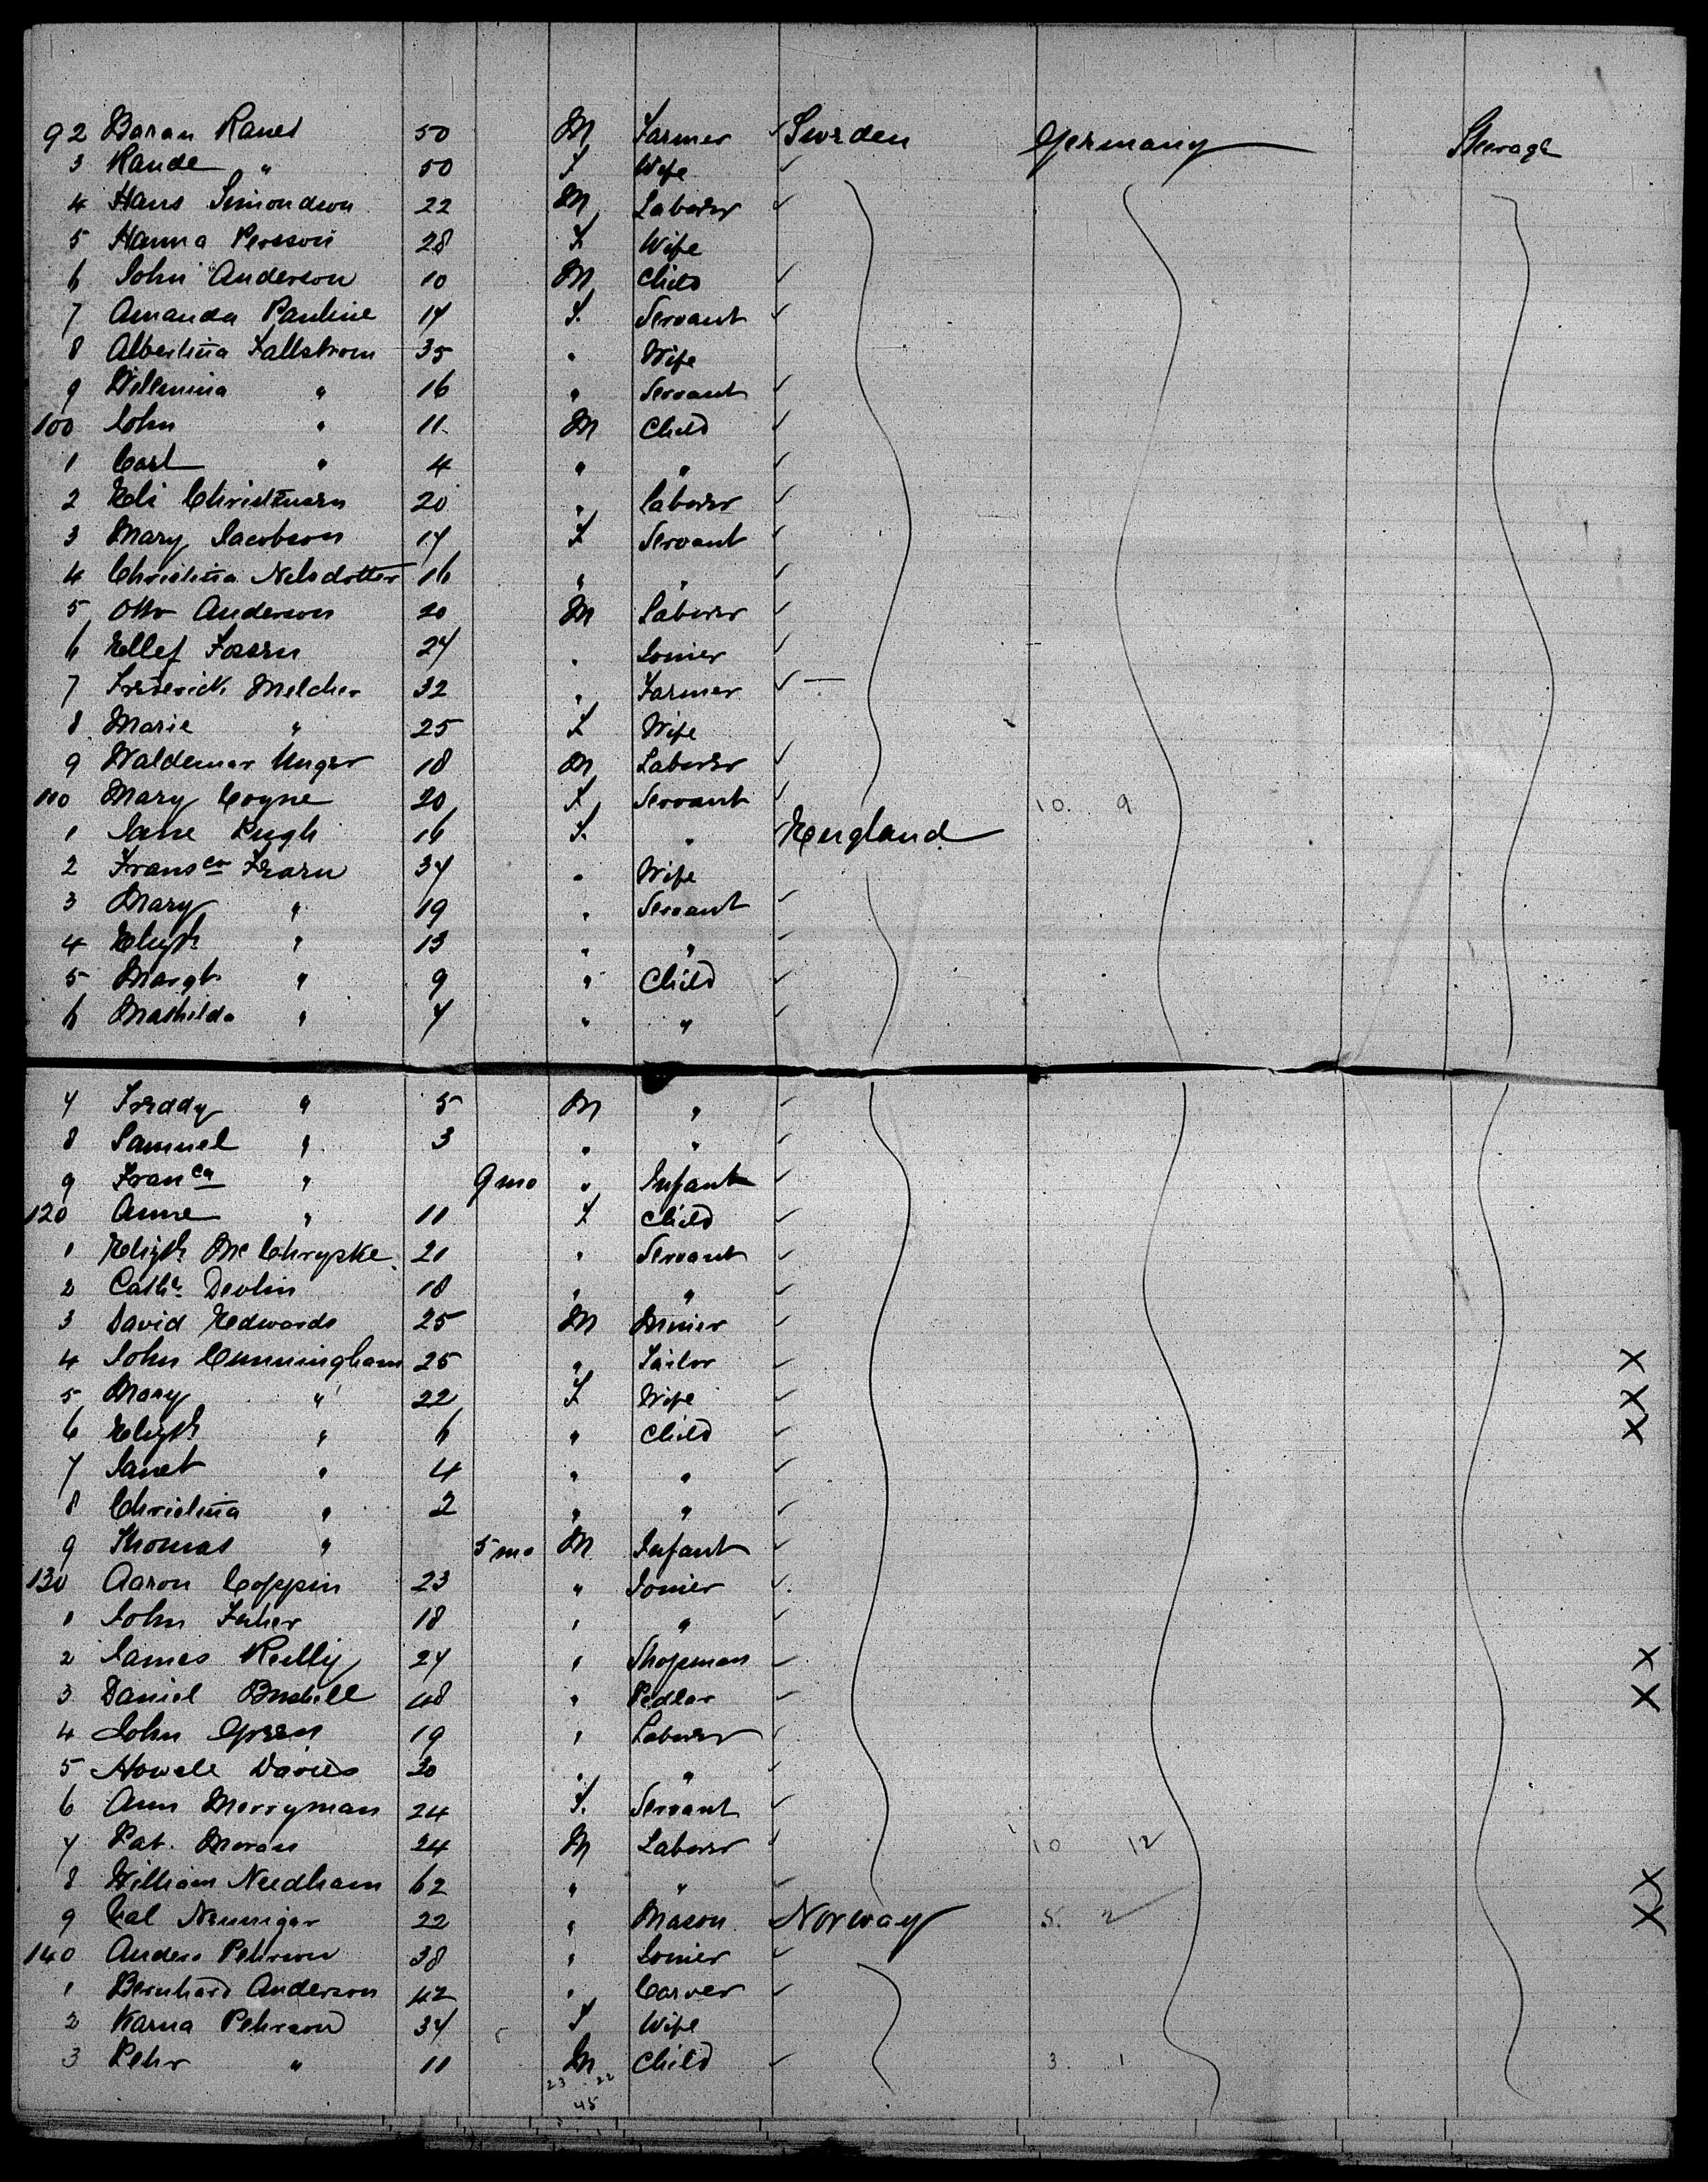 92 Baran Ranes 50 M Farmer ✓ Sweden Germany Steerage
3 Rande " 50 F Wife ✓
4 Hans Simondson 22 M Laborer ✓
5 Hanna Persson 28 F Wife
6 John Anderson 10 M Child ✓
7 Amanda Pauline 17 F. Servant ✓
8 Albertina Fallstrom 35 " Wife
9 Wilemina " 16 " Servant ✓
100 John " 11 M Child ✓
1 Carl " 4 " " ✓
2 Edi Christensen 20 " Laborer ✓
3 Mary Jacobson 17 F Servant ✓
4 Christina Nelsdotter 16 " " ✓
5 Otto Anderson 20 M Laborer ✓
6 Ellef 24 " Joiner ✓
7 Frederick Melcher 32 " Farmer ✓ —
8 Marie " 25 F Wife
9 Waldemar Unger 18 M Laborer ✓
110 Mary Coyne 20 F Servant ✓ 10. 9
1 Jane Pugh 16 F. " ✓ England
2 Frans co Fearn 34 " Wife
3 Mary " 19 " Servant ✓
4 Elizth " 13 " " ✓
5 Margt " 9 " Child ✓
6 Mathilda " 7 " " ✓
7 Freddy " 5 M " ✓
8 Samuel " 3 " " ✓
9 Fran ca " 9 mo " Infant ✓
120 Anne " 11 F Child ✓
1 Elizth Mc Chrypske 21 " Servant ✓
2 Cathe Devlin 18 " " ✓
3 David Edwards 25 M Miner ✓
4 John Cunningham 25 " Tailor ✓ X
5 Mary " 22 F Wife ✓ X X
6 Elizth " 6 " Child ✓ X
7 Janet " 4 " " ✓
8 Christina " 2 " " ✓
9 Thomas " 5 mo M Infant ✓
130 Aaron Coppin 23 " Joiner ✓
1 John 18 " " ✓
2 James Reilly 24 " Shopman ✓ X
3 Daniel 48 " Pedlar ✓ X X
4 John Green 19 " Laborer ✓
5 Howell Davies 30 " " ✓
6 Ann Merryman 24 F. Servant ✓
7 Pat. Moran 24 M Laborer ✓ 10 12
8 William Needham 62 " " ✓ X
9 Cal 22 " Mason Norway 5. 2 X X
140 Anders Pehrson 38 " Joiner ✓
1 Bernhard Anderson 42 " Carver ✓
2 Karna Pehrson 34 F Wife
3 Pehr " 11 M Child ✓ 3. 1
23 22
45